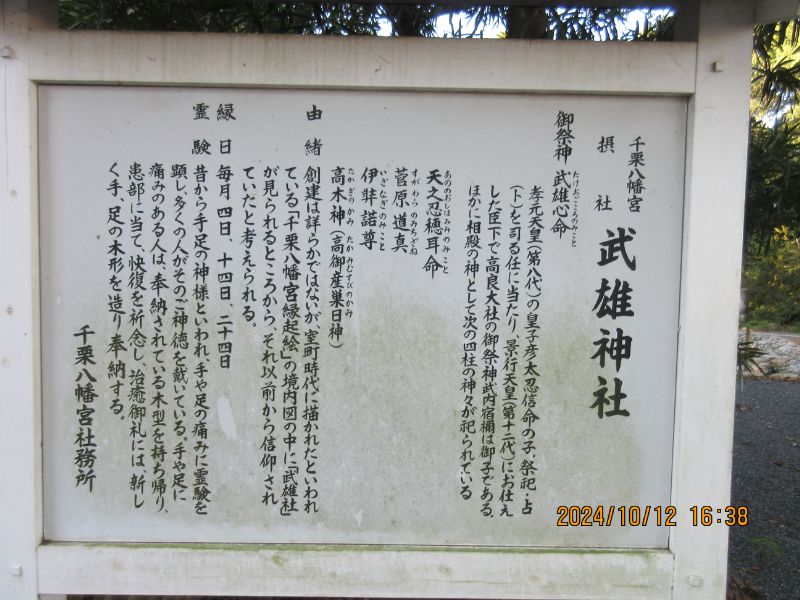 千栗八幡宮
摂社 武雄神社
御祭神 武雄心命
たけおごころのみこと
孝元天皇(第八代)の皇子彦太忍信命の子。祭祀・占
(卜)を司る任に当たり、景行天皇(第十二代)にお仕え
した臣下で高良大社の御祭神武内宿禰は御子である。
ほかに相殿の神として次の四柱の神々が祀られている
天之忍穂耳命
あめのおしほみみのみこと
菅原道真
すがわらのみちざね
伊弉諾尊
いざなぎのみこと
高木神(高御産巣日神)
たかぎのかみ たかみむすびのかみ
由緒 創建は詳らかではないが、室町時代に描かれたといわれ
ている「千栗八幡宮縁起絵」の境内図の中に「武雄社」
が見られるところから、それ以前から信仰され
ていたと考えられる。
縁日 毎月 四日、十四日、二十四日
霊験 昔から手足の神様といわれ、手や足の痛みに霊験を
顕し、多くの人がそのご神徳を戴いている。手や足に
痛みのある人は、奉納されている木型を持ち帰り、
患部に当て、快復を祈念し、治癒御礼には、新し
く手、足の木形を造り奉納する。
千栗八幡宮社務所
2024/10/12 16:38